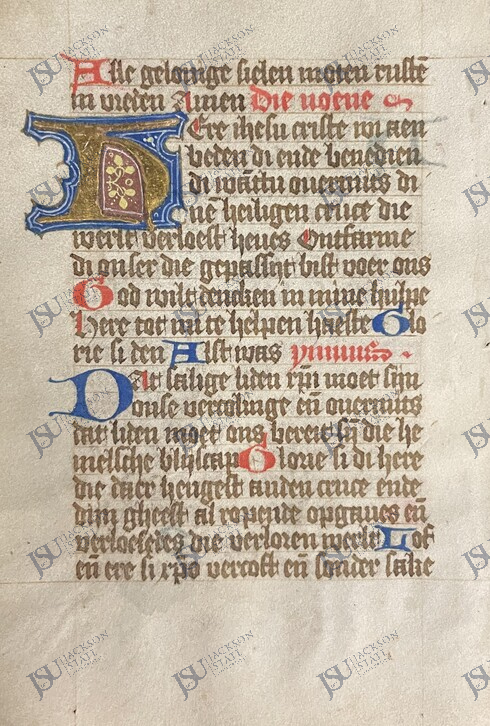 Alle geloinge sielen moten rustē
in vreden Amen Die noene
Here ihesu criste wi aen
beden di ende benedien
di wātu ouermits di
nē heiligen cruce die
werlt verloest heues Ontfarme
di onser die gepassyt bist voer ons
God wilt dencken in mine hulpe
here tot mi te helpen haeste Glo
rie si den Alst was ymnus
Dat salige liden xp̄i moet sijn
onse vertostinge eñ ouermits
dat liden moet ons bereet sijn die he
melsche blijscap Glorie si di here
die daer hengest anden cruce ende
dijn gheest al ropende opgaues eñ
verloestes die verloren werlt Lof
eñ ere si xp̄o vercoft eñ sonder sake
JSU JACKSON STATE UNIVERSITY